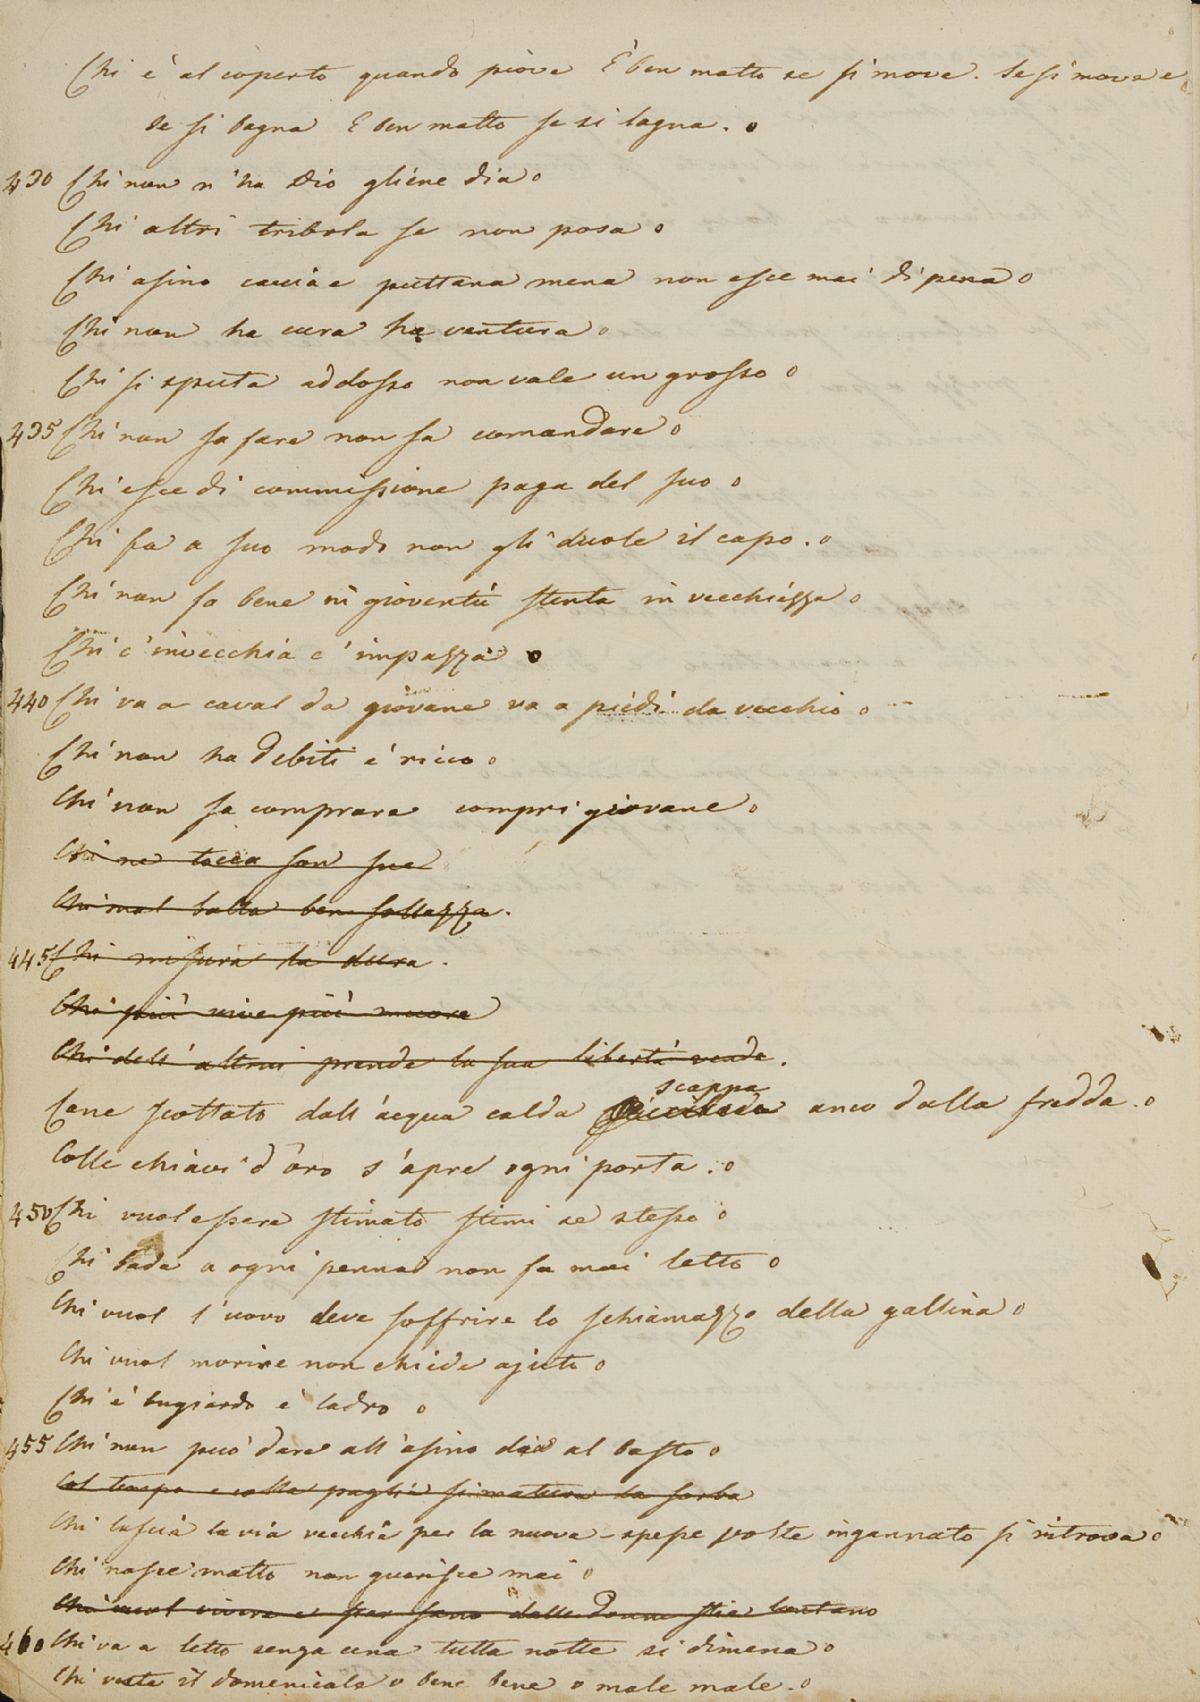 Chi è al coperto quando piove È ben matto se si move. Se si move e
se si bagna È ben matto se si lagna. o
430 Chi non n'ha Dio gliene dia o
Chi altri tribola se non posa o
Chi asino caccia e puttana mena non esce mai di pena o
Chi non ha cura ha ventura o
Chi si sputa addosso non vale un grosso o
435 Chi non sa fare non sa comandare o
Chi esce di commissione paga del suo o
Chi fa a suo modo non gli duole il capo. o
Chi non fa bene in gioventù stenta in vecchiezza o
Chi c'invecchia c'impazza o
440 Chi va a caval da giovane va a piedi da vecchio o
Chi non ha debiti è ricco o
Chi non sa comprare compri giovane o
Chi ne tocca son sue
Chi mal balla ben sollazza.
445 Chi misura la dura.
Chi più vive più muore
Chi dell'altrui prende la sua libertà vende.
scappa
Cane scottato dall'acqua calda anco dalla fredda. o
Colle chiavi d'oro s'apre ogni porta. o
450 Chi vuol essere stimato stimi se stesso o
Chi bada a ogni penna non fa mai letto o
Chi vuol l'uovo deve soffrire lo schiamazzo della gallina o
Chi vuol morire non chiede ajuto o
Chi è bugiardo è ladro o
455 Chi non può dare all'asino dia al basto o
Col tempo e colla paglia si matura la sorba
Chi lascia la via vecchia per la nuova spesse volte ingannato si ritrova o
Chi nasce matto non guarisce mai o
Chi vuol vivere e star sano dalle donne stia lontano
460 Chi va a letto senza cena tutta notte si dimena o
Chi veste il domenicale o bene bene o male male. o